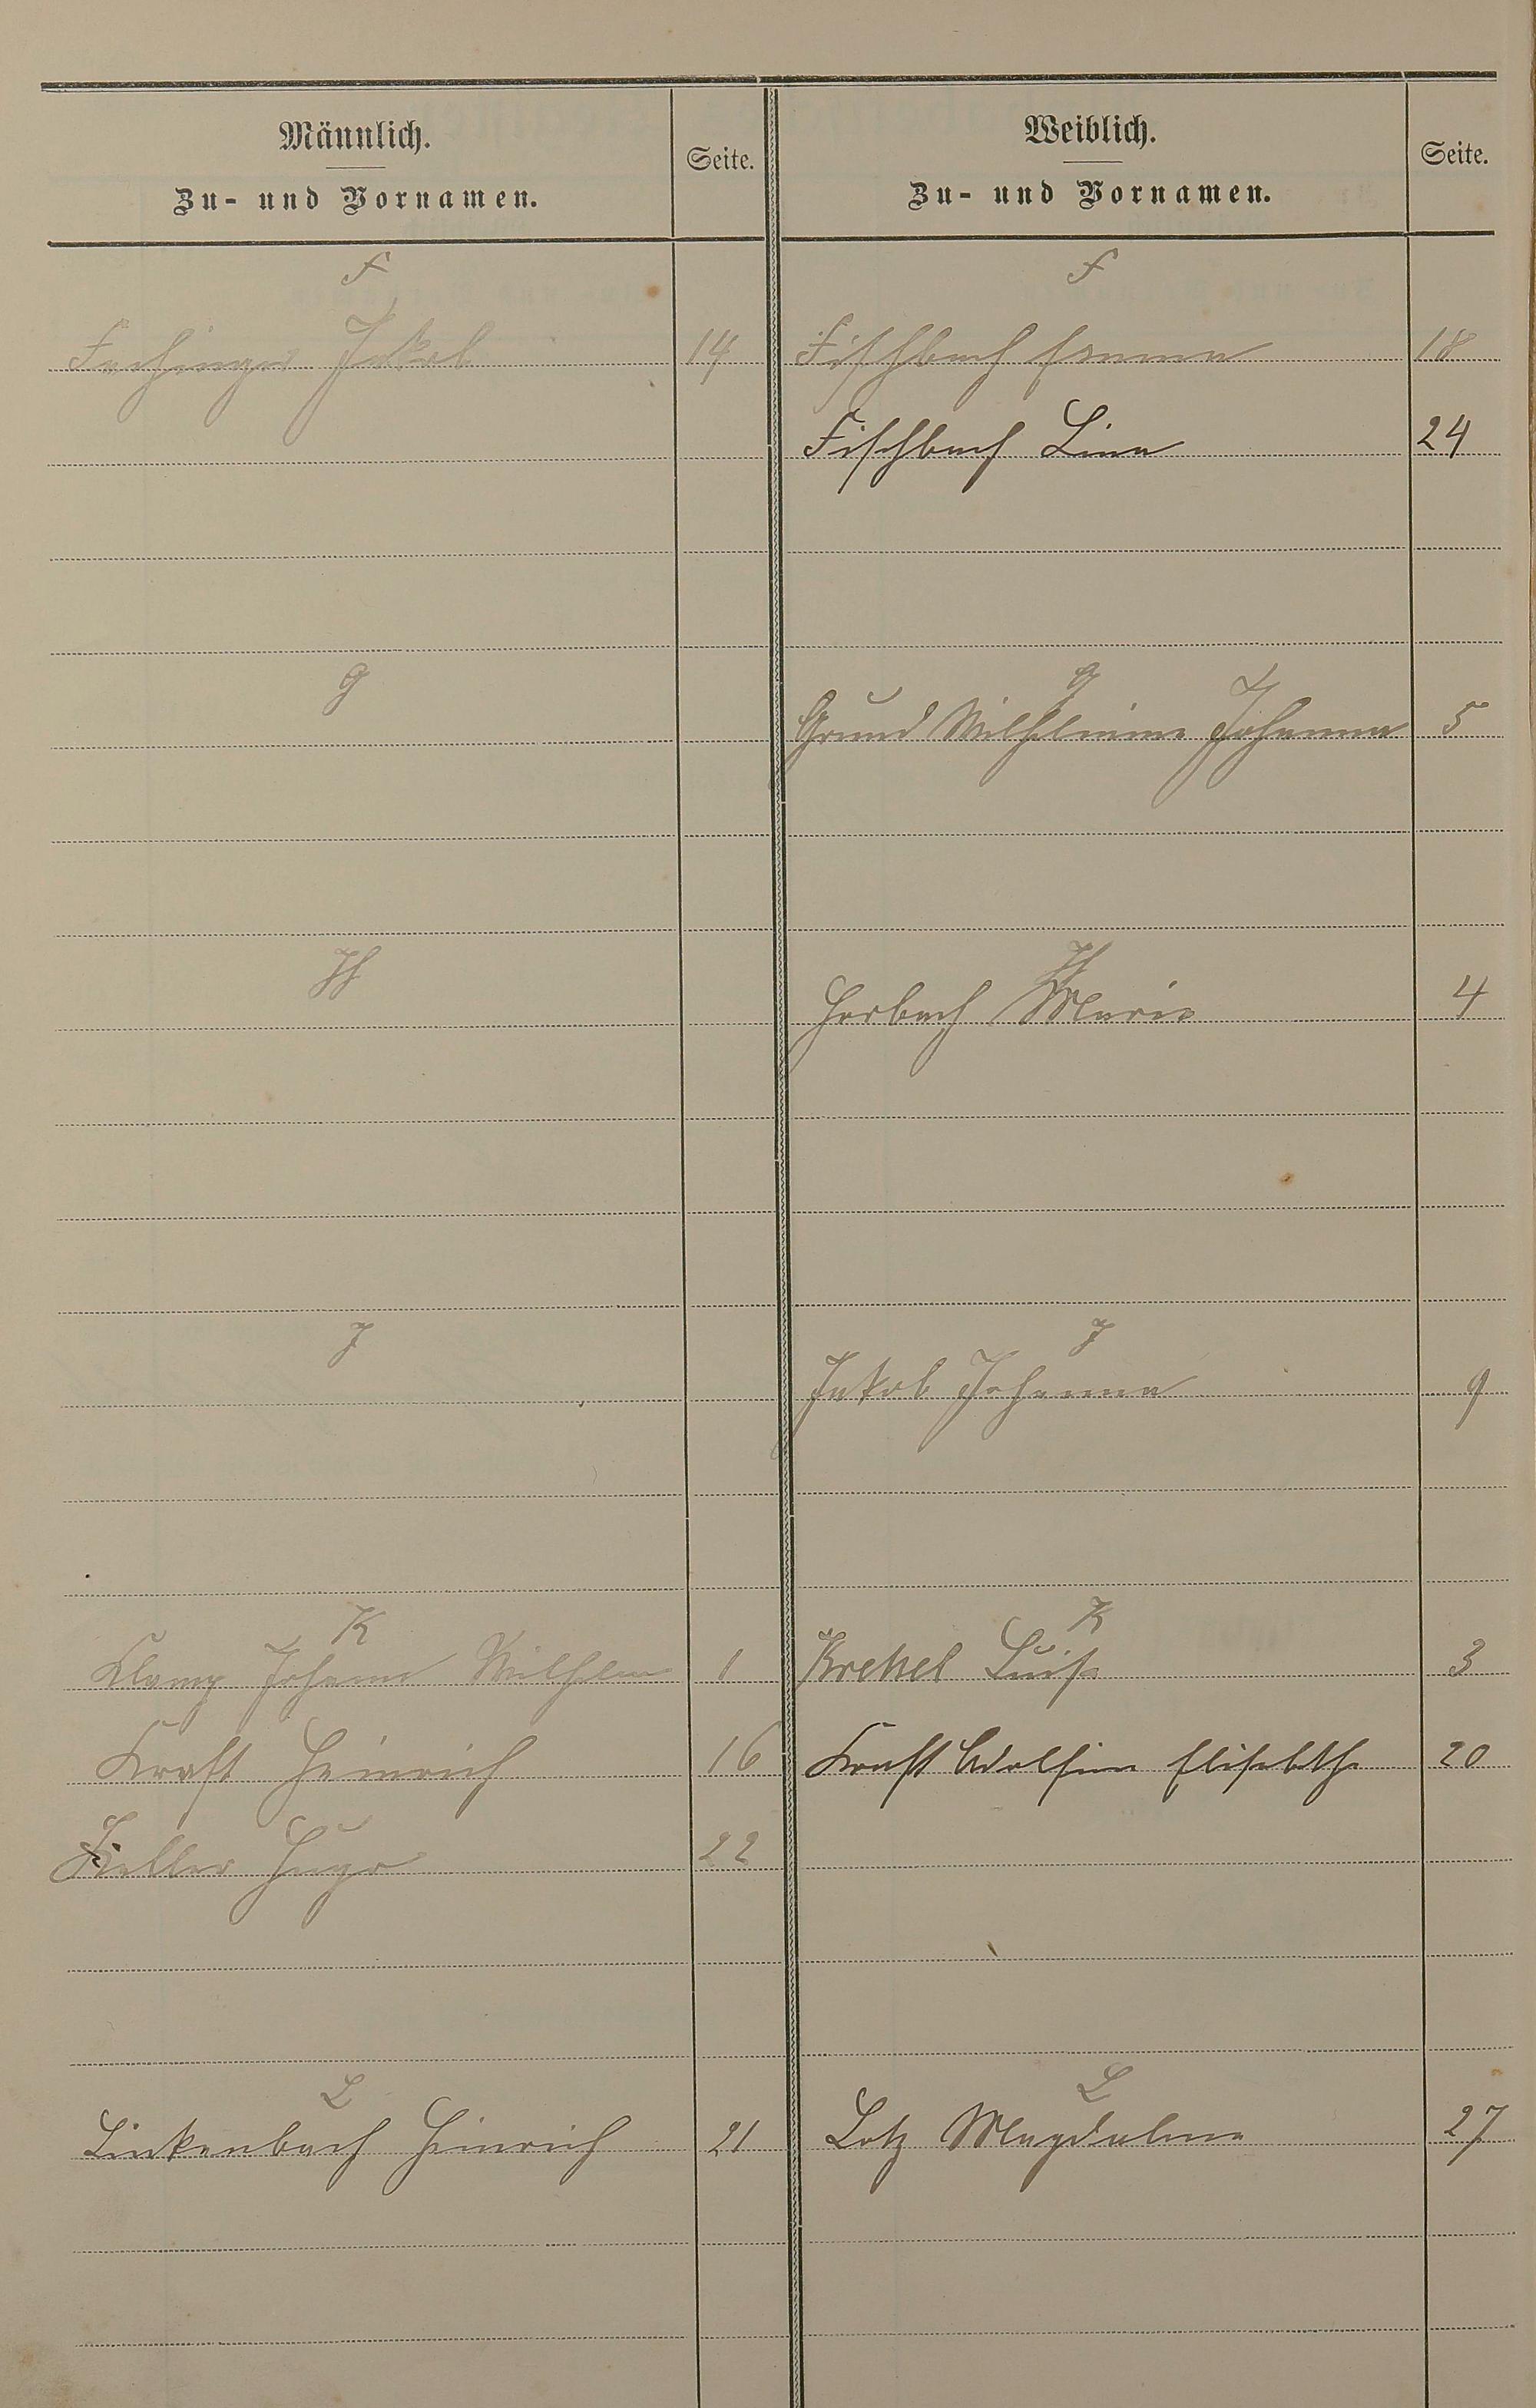 Männlich.
Zu- und Vornamen.
Seite.
Weiblich.
Zu- und Vornamen.
Seite.
F
F
Fachinger Jakob 14
Fischbach Emma 18
Fischbach Lina 24
G
G
Grund Wilhelmine Johanna 5
H
H
Horbach Marie 4
J
J
Jakob Johanna 9
K
K
Johann Wilhelm 1
Krekel Luise 3
Kraft Heinrich 16
Kraft Adolfine Elisabethe 20
Keller Hugo 22
L
L
Linkenbach Heinrich 21
Lotz Magdalene 27